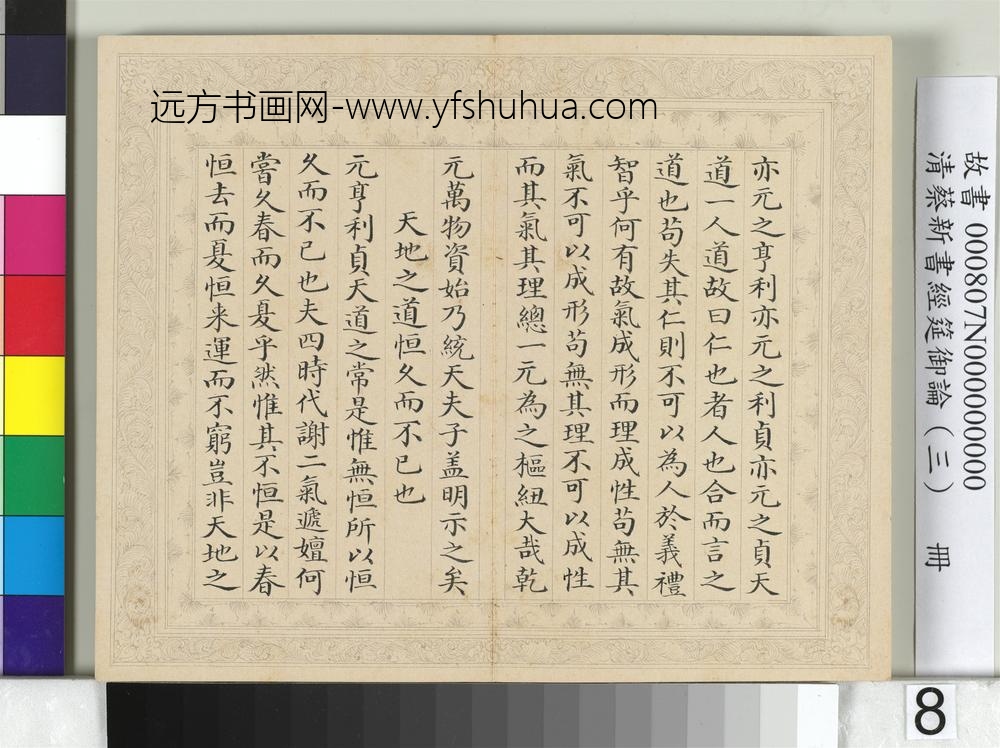 远方书画网-www.yfshuhua.com
亦元之亨利亦元之利貞亦元之貞天
道一人道故曰仁也者人也合而言之
道也苟失其仁則不可以為人於義禮
智乎何有故氣成形而理成性苟無其
氣不可以成形苟無其理不可以成性
而其氣其理總一元為之樞紐大哉乾
元萬物資始乃統天夫子盖明示之矣
天地之道恒久而不已也
元亨利貞天道之常是惟無恒所以恒
久而不已也夫四時代謝二氣遞嬗何
嘗久春而久夏乎然惟其不恒是以春
恒去而夏恒来運而不窮豈非天地之
故書 000807N000000000
清蔡新書經筵御論（三） 冊
8